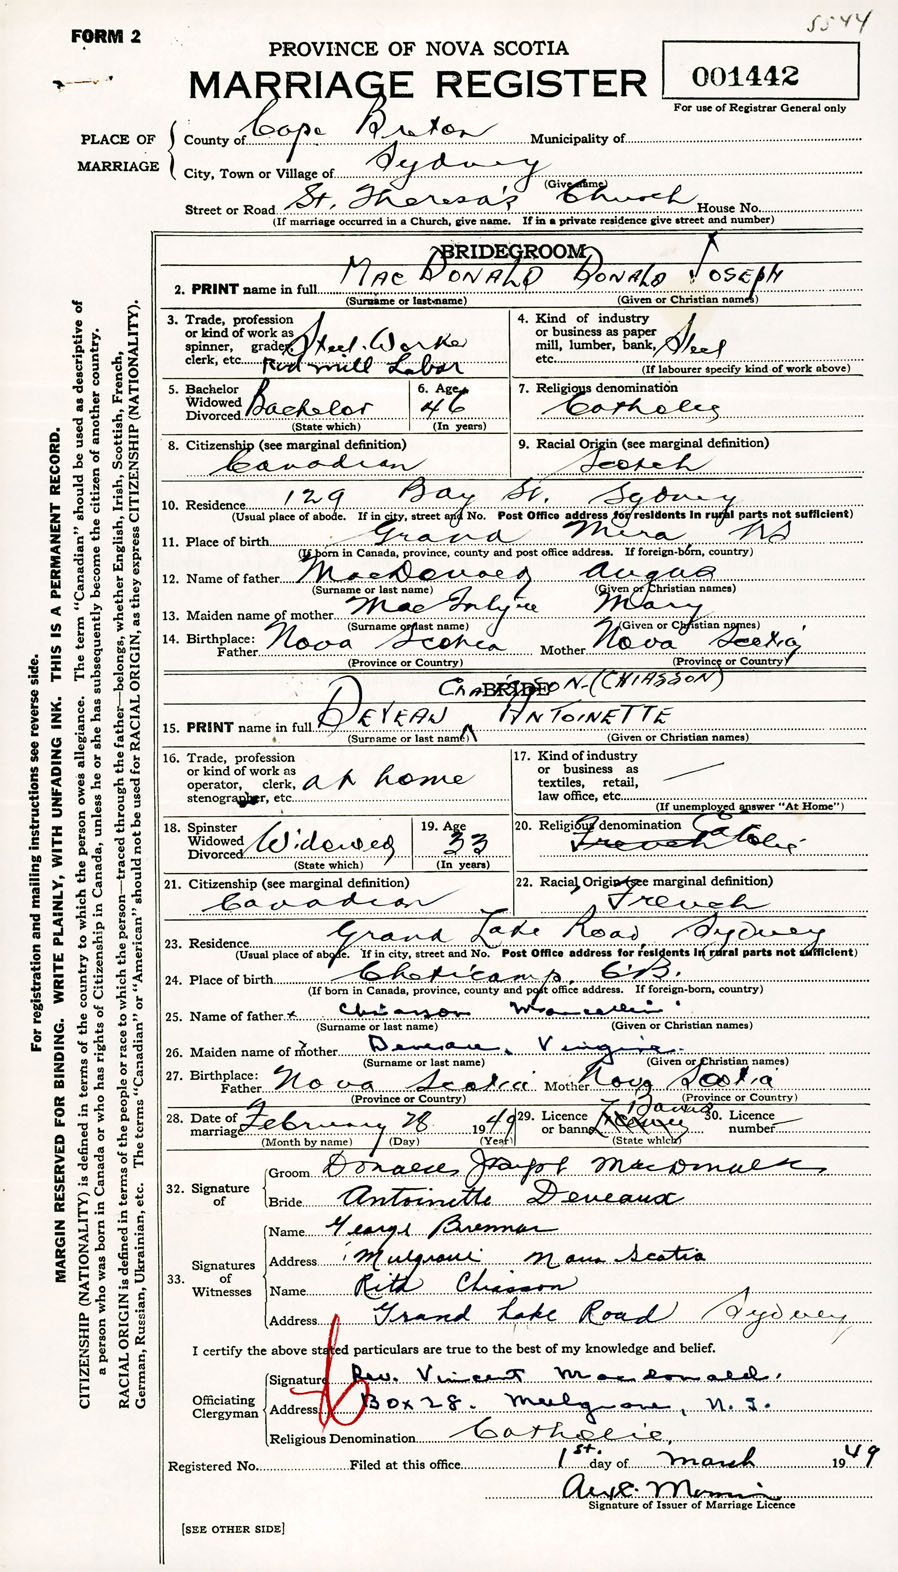 5544
FORM 2
PROVINCE OF NOVA SCOTIA
MARRIAGE REGISTER
001442
For use of Registrar General only
PLACE OF MARRIAGE
County of Cape Breton Municipality of
City, Town or Village of Sydney
(Give name)
Street or Road St. Theresa's Church House No.
(If marriage occurred in a Church, give name. If in a private residence give street and number)
BRIDEGROOM
2. PRINT name in full MacDONALD DONALD JOSEPH
(Surname or last name) (Given or Christian names)
3. Trade, profession or kind of work as spinner, grader, clerk, etc. Steel Worker
Rod mill Labor
4. Kind of industry or business as paper mill, lumber, bank, etc. Steel
(If labourer specify kind of work above)
5. Bachelor Widowed Divorced Bachelor
(State which)
6. Age 46
(In years)
7. Religious denomination
Catholic
8. Citizenship (see marginal definition)
Canadian
9. Racial Origin (see marginal definition)
Scotch
10. Residence 129 Bay St. Sydney
(Usual place of abode. If in city, street and No. Post Office address for residents in rural parts not sufficient)
11. Place of birth Grand Mira NS
(If born in Canada, province, county and post office address. If foreign-born, country)
12. Name of father MacDonald Angus
(Surname or last name) (Given or Christian names)
13. Maiden name of mother Mary
(Surname or last name) (Given or Christian names)
14. Birthplace: Father Nova Scotia Mother Nova Scotia
(Province or Country) (Province or Country)
BRIDE
(CHIASSON)
15. PRINT name in full DEVEAU ANTOINETTE
(Surname or last name) (Given or Christian names)
16. Trade, profession or kind of work as operator, clerk, stenographer, etc. at home
17. Kind of industry or business as textiles, retail, law office, etc.
(If unemployed answer "At Home")
18. Spinster Widowed Divorced Widowed
(State which)
19. Age 33
(In years)
20. Religious denomination Catholic
French
21. Citizenship (see marginal definition)
Canadian
22. Racial Origin (see marginal definition)
French
23. Residence Grand Lake Road, Sydney
(Usual place of abode. If in city, street and No. Post Office address for residents in rural parts not sufficient)
24. Place of birth Cheticamp, C.B.
(If born in Canada, province, county and post office address. If foreign-born, country)
25. Name of father Chiasson
(Surname or last name) (Given or Christian names)
26. Maiden name of mother Deveau, Virginie
(Surname or last name) (Given or Christian names)
27. Birthplace: Father Nova Scotia Mother Nova Scotia
(Province or Country) (Province or Country)
28. Date of marriage February 28 1949
(Month by name) (Day) (Year)
29. Licence or banns Banns
(State which)
30. Licence number
32. Signature of
Groom Donald Joseph MacDonald
Bride Antoinette Deveaux
33. Signatures of Witnesses
Name George Brennan
Address Mulgrave Nova Scotia
Name Rita Chiasson
Address Grand Lake Road Sydney
I certify the above stated particulars are true to the best of my knowledge and belief.
Officiating Clergyman
Signature Rev. Vincent Macdonald.
Address Box 28. Mulgrave, N.S.
Religious Denomination Catholic,
Registered No. Filed at this office 1st. day of March 1949
Signature of Issuer of Marriage Licence
[SEE OTHER SIDE]
For registration and mailing instructions see reverse side.
MARGIN RESERVED FOR BINDING. WRITE PLAINLY, WITH UNFADING INK. THIS IS A PERMANENT RECORD.
CITIZENSHIP (NATIONALITY) is defined in terms of the country to which the person owes allegiance. The term "Canadian" should be used as descriptive of
a person who was born in Canada or who has rights of Citizenship in Canada, unless he or she has subsequently become the citizen of another country.
RACIAL ORIGIN is defined in terms of the people or race to which the person—traced through the father—belongs, whether English, Irish, Scottish, French,
German, Russian, Ukrainian, etc. The terms "Canadian" or "American" should not be used for RACIAL ORIGIN, as they express CITIZENSHIP (NATIONALITY).